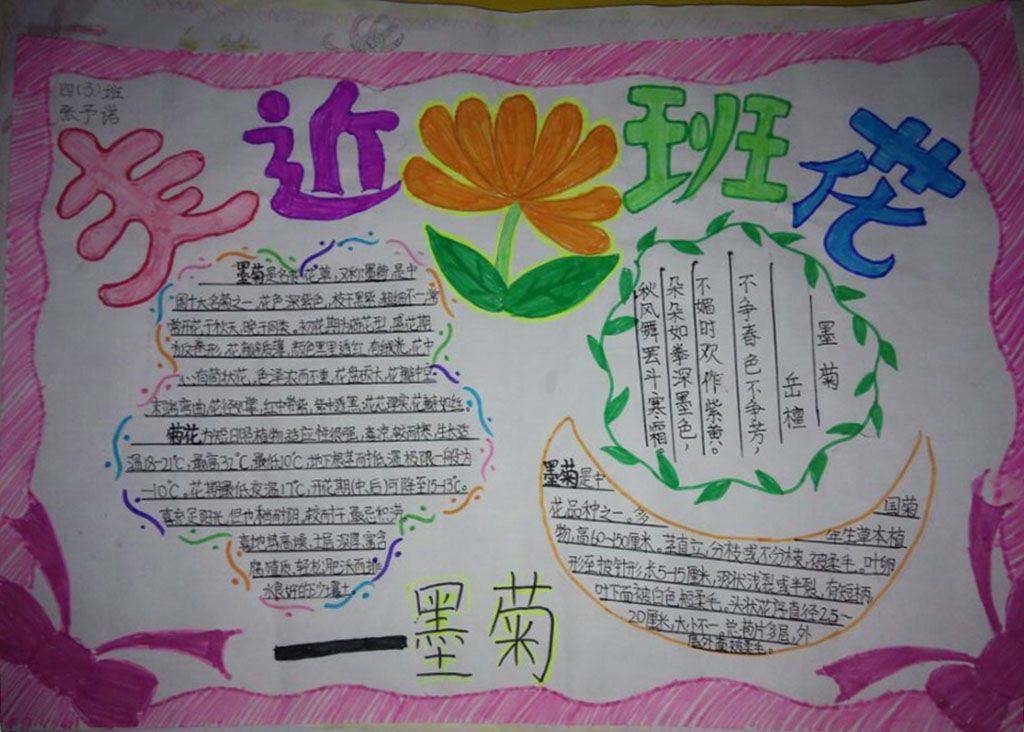 四(3)班
张予诺
走近班花
墨菊是名布花草,又称墨荷是中
国十大名菊之一花色深紫色,枝干黑紫,粗细不一,通
常开花于秋天,晚于同类。初花期为荷花型,盛花期
为反卷形,花瓣薄,颜色黑里透红,有绒光,花中
心有筒状花,色泽浓而不重,花盘硕大,花瓣中空
末端弯曲,花径较紧,红中带紫,紫中透黑,花朵弹实,花瓣如丝。
菊花为短日照植物,适应性很强,喜凉,较耐寒,生长适
温18-21℃,最高32℃,最低10℃,地下根茎耐低温极限一般为
-10℃。花期最低夜温17℃,开花期(中、后)可降至15-13℃。
喜充足阳光,但也稍耐阴,较耐干,最忌积涝
喜地势高燥,土层深厚,富含
腐殖质,轻松肥沃而排
水良好的沙壤土
墨菊
岳檀
不争春色不争芳,
不媚时欢作紫黄。
朵朵如拳深墨色,
秋风舞罢斗寒霜。
墨菊是中国菊
花品种之一。多年生草本植
物,高60-150厘米。茎直立,分枝或不分枝,被柔毛。叶卵
形至披针形,长5-15厘米,羽状浅裂或半裂,有短柄
叶下面被白色短柔毛。头状花序直径2.5~
20厘米,大小不一总苞片多层,外
层外面被柔毛。
一墨菊